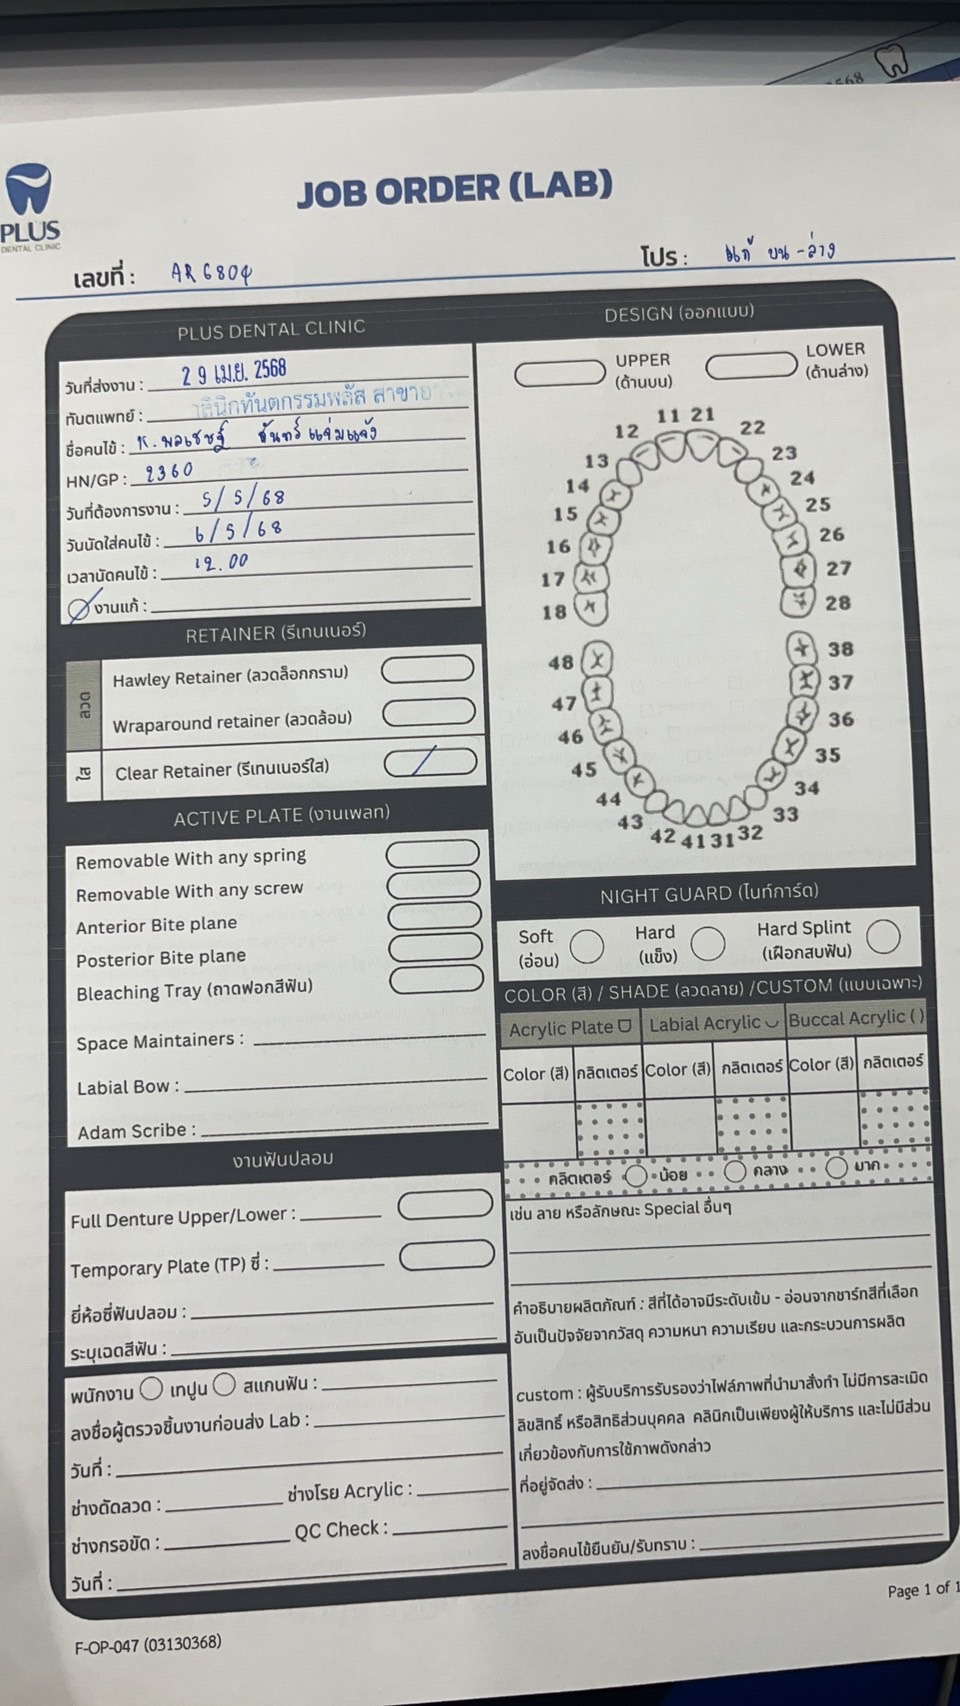 568
PLUS
DENTAL CLINIC
JOB ORDER (LAB)
เลขที่ : AR6804
โปร : แก้ บน-ล่าง
PLUS DENTAL CLINIC
วันที่ส่งงาน : 29 เม.ย. 2568
ทันตแพทย์ : คลินิกทันตกรรมพลัส สาขา
ชื่อคนไข้ : K. พลเชษฐ์ จันทร์แจ่มแจ้ง
HN/GP : 2360
วันที่ต้องการงาน : 5/5/68
วันนัดใส่คนไข้ : 6/5/68
เวลานัดคนไข้ : 12.00
งานแก้ :
RETAINER (รีเทนเนอร์)
ลวด
Hawley Retainer (ลวดล็อกกราม)
Wraparound retainer (ลวดล้อม)
ใส
Clear Retainer (รีเทนเนอร์ใส) /
ACTIVE PLATE (งานเพลท)
Removable With any spring
Removable With any screw
Anterior Bite plane
Posterior Bite plane
Bleaching Tray (ถาดฟอกสีฟัน)
Space Maintainers :
Labial Bow :
Adam Scribe :
งานฟันปลอม
Full Denture Upper/Lower :
Temporary Plate (TP) ซี่ :
ยี่ห้อซี่ฟันปลอม :
ระบุเฉดสีฟัน :
พนักงาน เทปูน สแกนฟัน :
ลงชื่อผู้ตรวจชิ้นงานก่อนส่ง Lab :
วันที่ :
ช่างดัดลวด : ช่างโรย Acrylic :
ช่างกรอขัด : QC Check :
วันที่ :
DESIGN (ออกแบบ)
UPPER
(ด้านบน)
LOWER
(ด้านล่าง)
11 21
12 22
13 23
14 24
15 25
16 26
17 27
18 28
48 38
47 37
46 36
45 35
44 34
43 33
42 41 31 32
NIGHT GUARD (ไนท์การ์ด)
Soft
(อ่อน)
Hard
(แข็ง)
Hard Splint
(เฝือกสบฟัน)
COLOR (สี) / SHADE (ลวดลาย) /CUSTOM (แบบเฉพาะ)
Acrylic Plate Labial Acrylic Buccal Acrylic ( )
Color (สี) กลิตเตอร์ Color (สี) กลิตเตอร์ Color (สี) กลิตเตอร์
กลิตเตอร์ น้อย กลาง มาก
เช่น ลาย หรือลักษณะ Special อื่นๆ
คำอธิบายผลิตภัณฑ์ : สีที่ได้อาจมีระดับเข้ม - อ่อนจากชาร์ทสีที่เลือก
อันเป็นปัจจัยจากวัสดุ ความหนา ความเรียบ และกระบวนการผลิต
custom : ผู้รับบริการรับรองว่าไฟล์ภาพที่นำมาสั่งทำ ไม่มีการละเมิด
ลิขสิทธิ์ หรือสิทธิส่วนบุคคล คลินิกเป็นเพียงผู้ให้บริการ และไม่มีส่วน
เกี่ยวข้องกับการใช้ภาพดังกล่าว
ที่อยู่จัดส่ง :
ลงชื่อคนไข้ยืนยัน/รับทราบ :
Page 1 of 1
F-OP-047 (03130368)